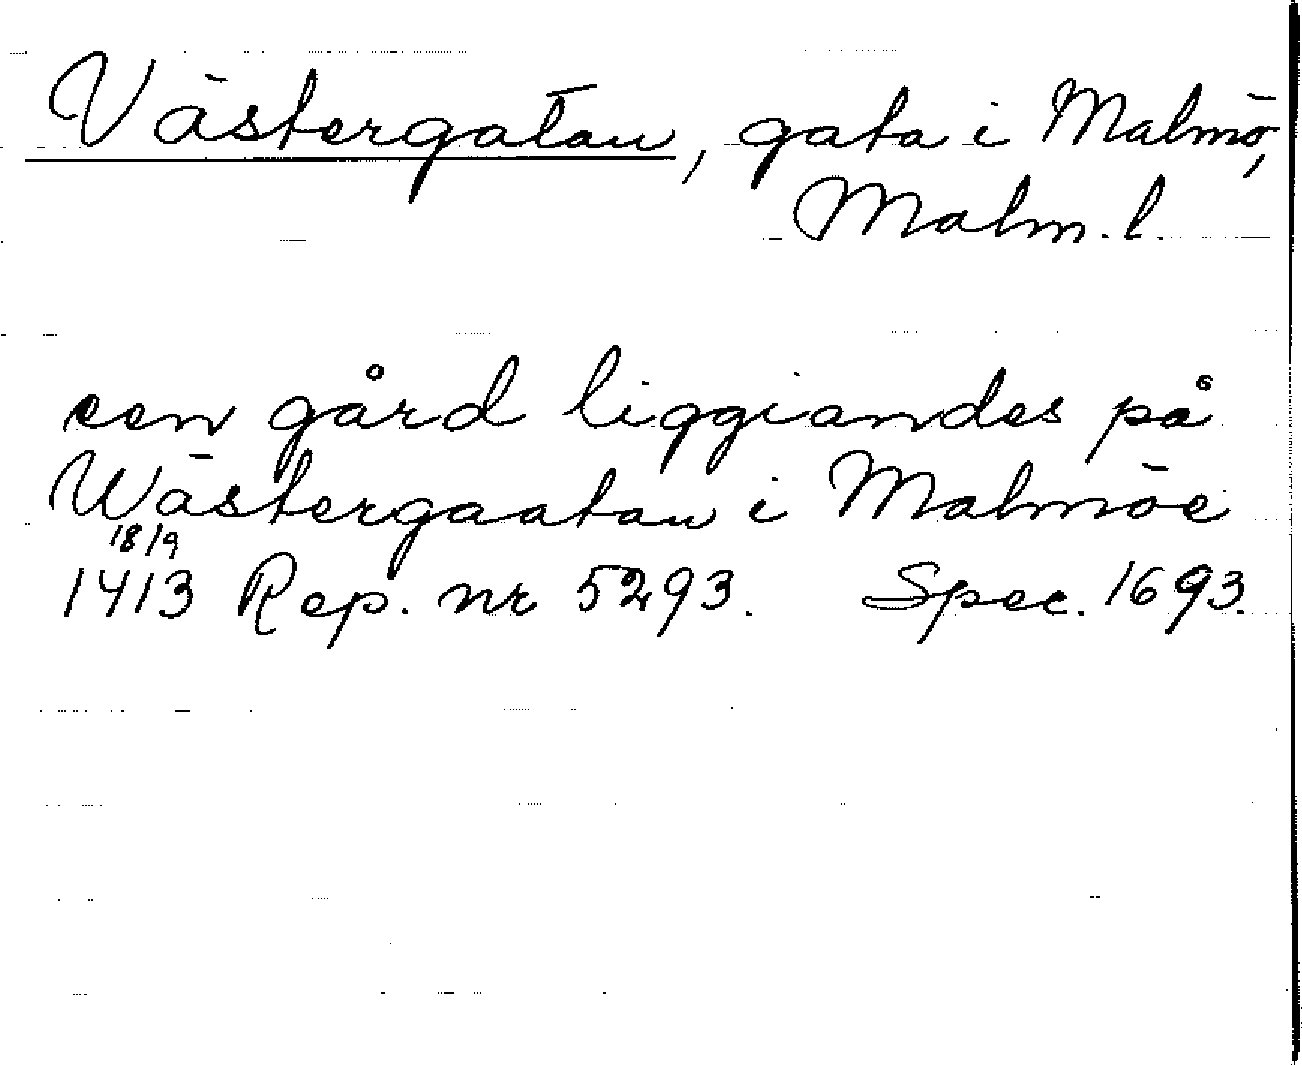 Västergatan, gata i Malmö,
Malm. l.
een gård liggiandes på
Wästergaatan i Malmöe
18/9
1413 Rep. nr 5293. Spec. 1693.